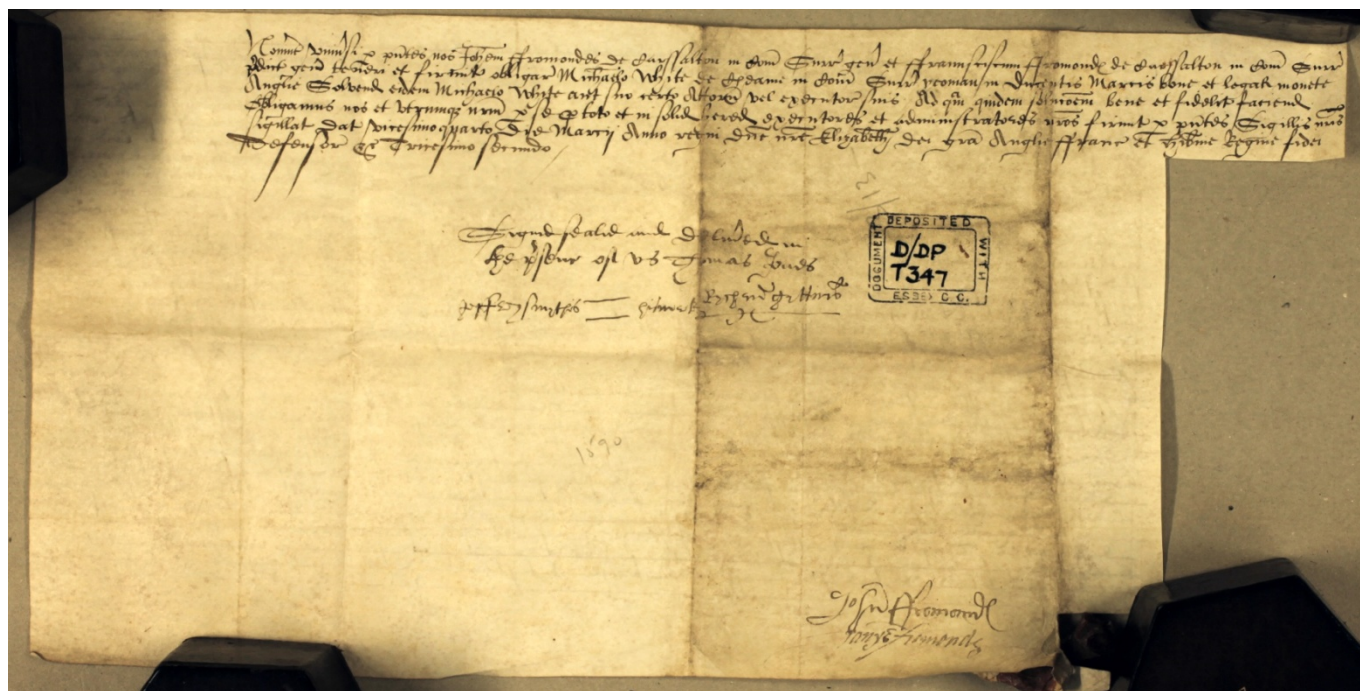 Nov̄int univ̄si p p̄ntes nos Joh̄em ffromondes de Carssalton in Com̄ Surr̄ gen̄ et ffrannsiscum ffromonds de Carssalton in Com̄ Surr̄
p̄dict gen̄ teneri et firmit̄ obligari Michaeli White de Cheame in Com̄ Surr̄ yeoman in Ducentis Marcis bone et legalis monete
Anglie Solvend eidem Michaeli White aut suo certo Attorn̄ vel executor suis Ad q̄m quidem soluc̄oem bene et fidelit̄ faciend
Obligamus nos et utrumq̄ n̄rm p se p toto et in solid hered executores et administratores n̄ros firmit̄ p p̄ntes Sigillis n̄ris
sigillat Dat vicesimo quarto Die Marcii Anno regni Dn̄e n̄re Elizabeth Dei gr̄a Anglie ffranc et Hib̄nie Regine fidei
Defensor &c Tricesimo secundo
Signed sealed and Delīved in
the p̄senc of us Thomas
Jeffrey smythes Rychard
D/DP
T347
DOCUMENT DEPOSITED WITH
ESSEX C.C.
1590
John ffromond
ffromonds